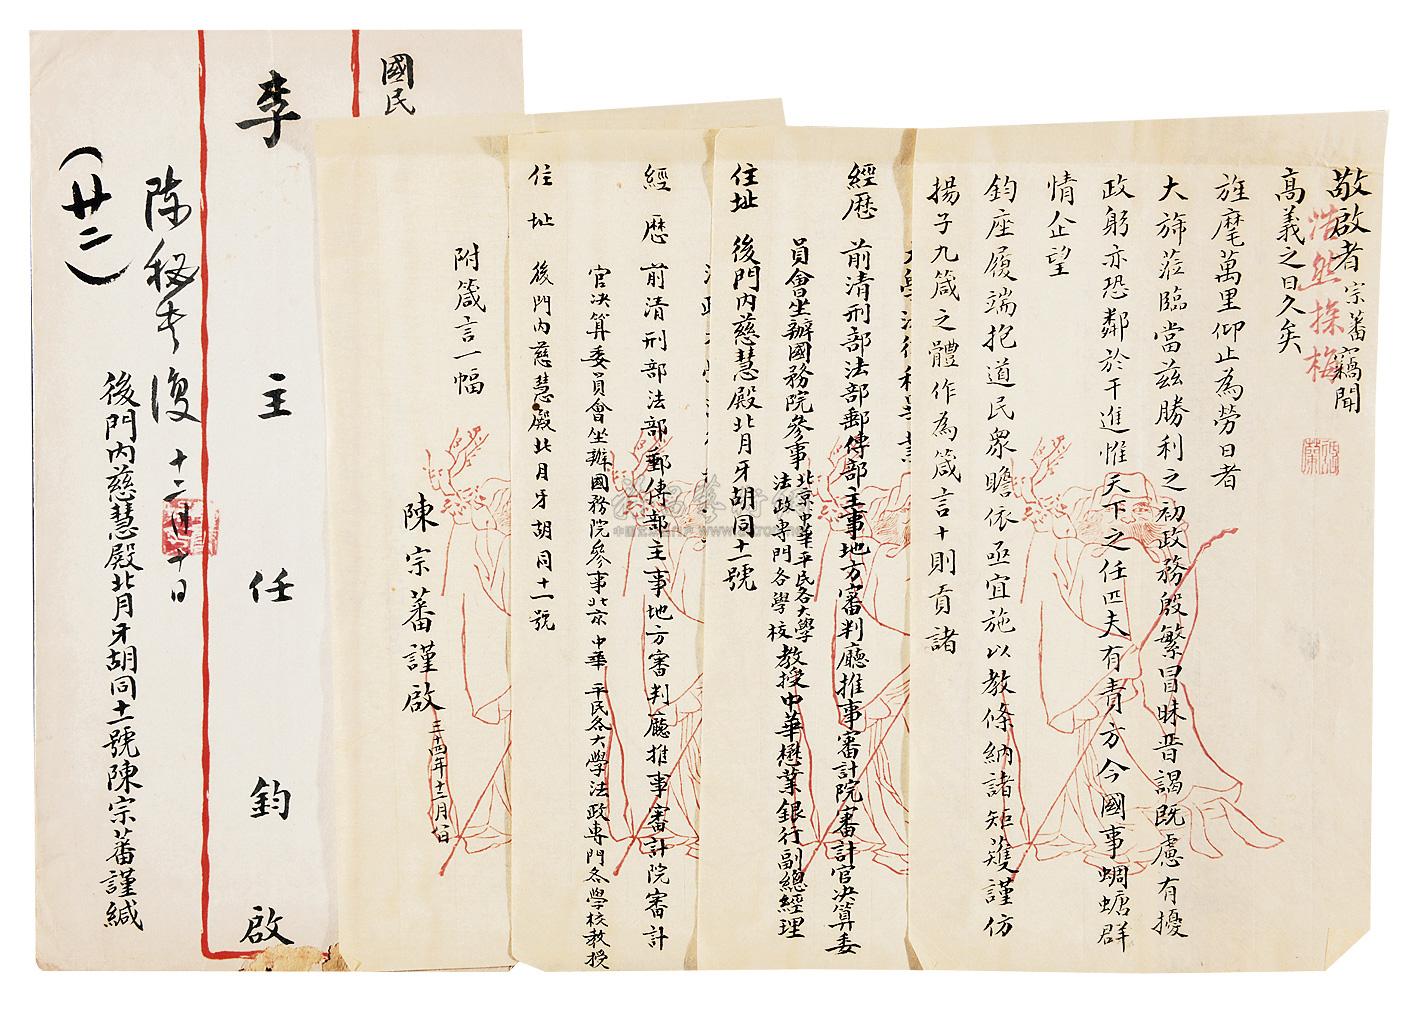 敬啟者宗蕃竊聞
高義之日久矣
旌麾萬里仰止為勞日者
大斾蒞臨當茲勝利之初政務殷繁冒昧晋謁既慮有擾
政躬亦恐鄰於干進惟天下之任匹夫有責方今國事蜩螗群
情企望
鈞座履端抱道民衆瞻依亟宜施以教條納諸矩蒦謹仿
揚子九箴之體作為箴言十則貢諸
浩然探梅
經歷 前清刑部法部郵傳部主事地方審判廳推事審計院審計官决算委
員會坐辦國務院參事北京中華平民各大學法政專門各學校教授中華懋業銀行副總經理
住址 後門內慈慧殿北月牙胡同十一號
經歷 前清刑部法部郵傳部主事地方審判廳推事審計院審計
官决算委員會坐辦國務院參事北京中華平民各大學法政專門各學校教授
住址 後門內慈慧殿北月牙胡同十一號
附箴言一幅
陳宗蕃謹啟
三十四年十二月
國民
李主任鈞啟
陈秘书復 十二月十日
(廿二)
後門內慈慧殿北月牙胡同十一號陳宗蕃謹緘